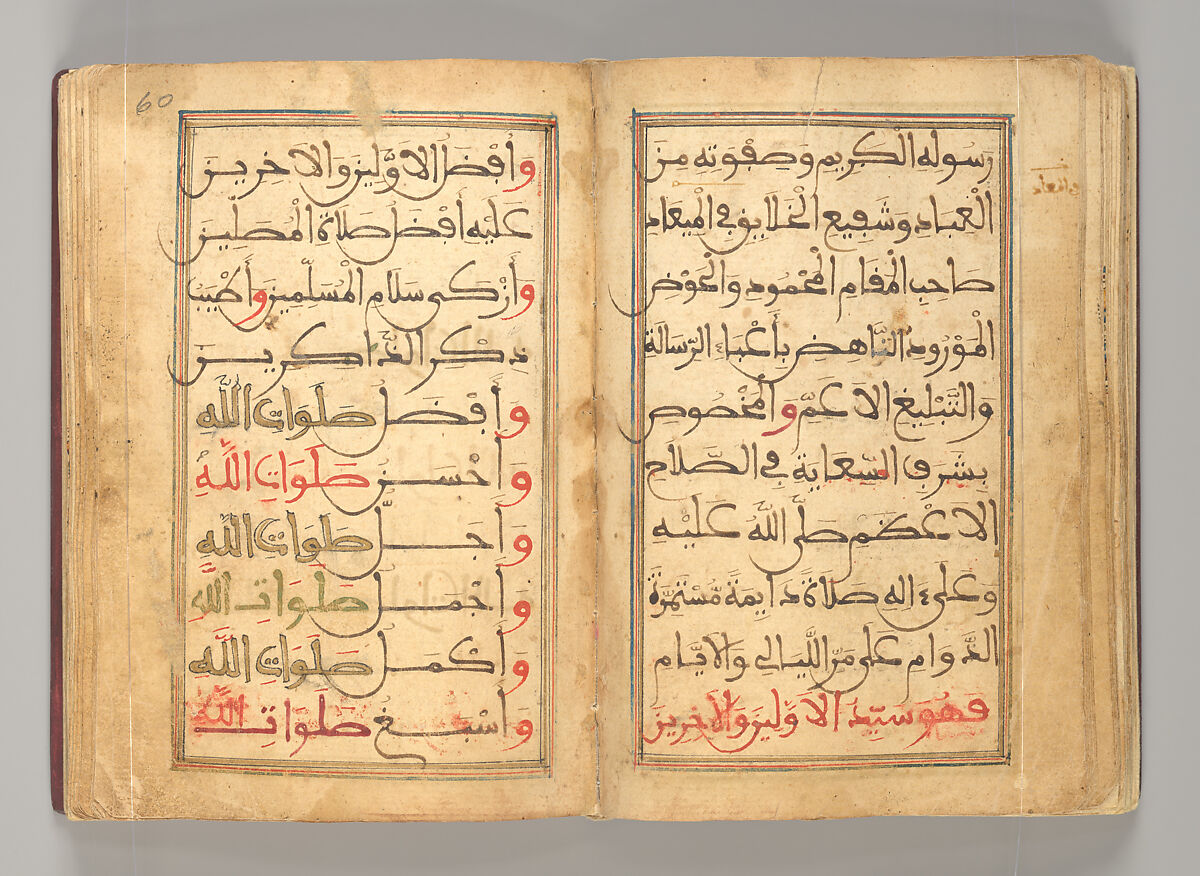 رَسُولِهِ الْكَرِيمِ وَصَفْوَتِهِ مِنَ
الْعِبَادِ وَشَفِيعِ الْخَلَايِقِ فِي الْمِيعَادِ
صَاحِبِ الْمَقَامِ الْمَحْمُودِ وَالْحَوْضِ
الْمَوْرُودِ النَّاهِضِ بِأَعْبَاءِ الرِّسَالَةِ
وَالتَّبْلِيغِ الاَعَمِّ وَالْمَخْصُوصِ
بِشَرَفِ السِّعَايَةِ فِي الصَّلَاحِ
الاَعْظَمِ صَلَّى اللَّهُ عَلَيْهِ
وَعَلَى ءَالِهِ صَلَاةً دَايِمَةً مُّسْتَمِرَّةَ
الدَّوَامِ عَلَى مَرِّ اللَّيَالِي وَالاَيَّامِ
فَهُوَ سَيِّدُ الاَوَّلِينَ وَالاَخِرِينَ
60
وَأَفْضَلُ الاَوَّلِينَ وَالاَخِرِينَ
عَلَيْهِ أَفْضَلُ صَلَاةِ الْمُصَلِّينَ
وَأَزْكَى سَلَامِ الْمُسَلِّمِينَ وَأَطْيَبُ
ذِكْرِ الذَّاكِرِينَ
وَأَفْضَلُ صَلَوَاتِ اللَّهِ
وَأَحْسَنُ صَلَوَاتِ اللَّهِ
وَأَجَلُّ صَلَوَاتِ اللَّهِ
وَأَجْمَلُ صَلَوَاتِ اللَّهِ
وَأَكْمَلُ صَلَوَاتِ اللَّهِ
وَأَسْبَغُ صَلَوَاتِ اللَّهِ